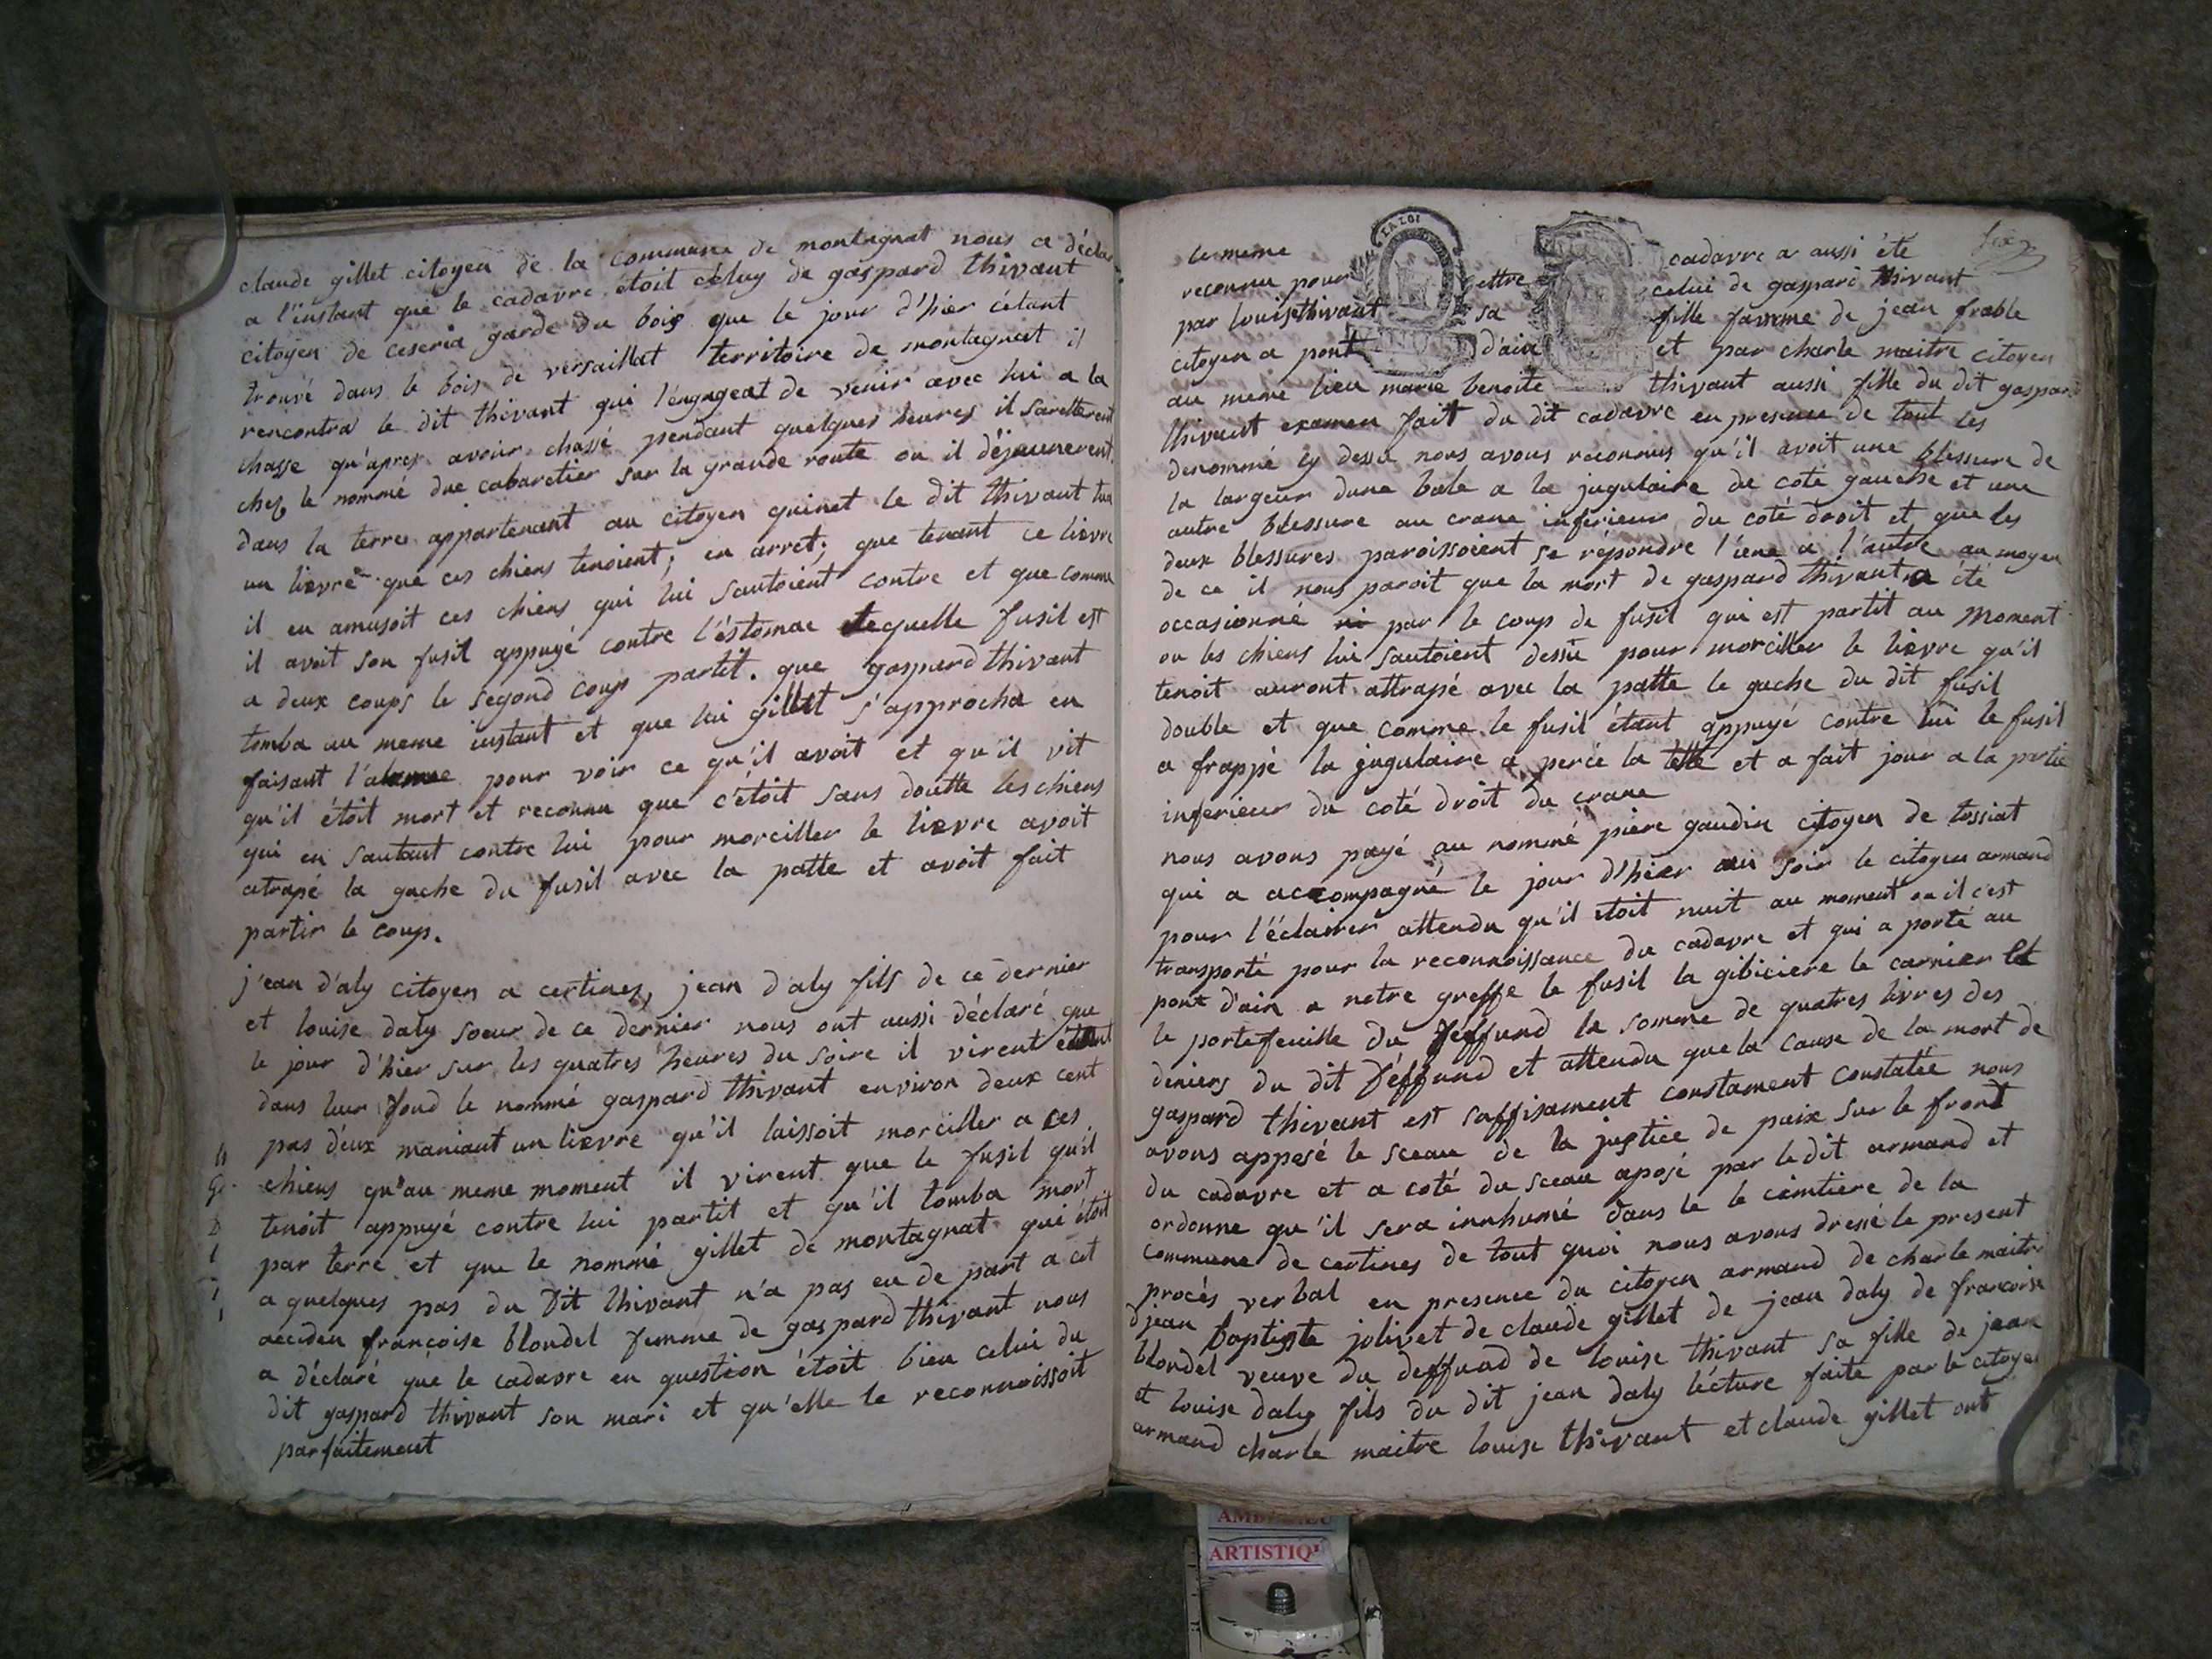 claude gillet citoyen de la commune de montagnat nous a déclar
a l'instant que le cadavre étoit celuy de gaspard thivant
citoyen de ceseria garde du bois que le jour d'hier cétant
trouvé dans le bois de versaillat territoire de montagnat il
rencontra le dit thivant qui l'éngageat de venir avec lui a la
chasse qu'apres avoir chassé pendant quelques heures il sarretterent
chez le nommé due cabaretier sur la grande route ou il déjeunerent
dans la terre appartenant au citoyen quinet le dit thivant tua
un lievre que ces chiens tenoient, en arret, que tenant ce lievre
il en amusoit ces chiens qui lui sautoient contre et que comme
il avoit son fusil appuyé contre l'éstomac lequelle fusil est
a deux coups le segond coup partit. que gaspard thivant
tomba au meme instant et que lui gillet s'approcha en
faisant l'alarme pour voir ce qu'il avoit et qu'il vit
qu'il étoit mort et reconnu que c'étoit sans doutte les chiens
qui en sautant contre lui pour morciller le lievre avoit
atrapé la gache du fusil avec la patte et avoit fait
partir le coup.
j'ean d'aly citoyen a certines, jean daly fils de ce dernier
et louise daly soeur de ce dernier nous ont aussi déclaré que
le jour d'hier sur les quatres heures du soire il virent étant
dans leur fond le nommé gaspard thivant environ deux cent
pas d'eux maniant un lievre qu'il laissoit morciller a ces
chiens qu'au meme moment il virent que le fusil qu'il
tenoit appuyé contre lui partit et qu'il tomba mort
par terre et que le nommé gillet de montagnat qui étoit
a quelques pas du dit thivant n'a pas eu de part a cet
acciden françoise blondel femme de gaspard thivant nous
a déclaré que le cadavre en question étoit bien celui du
dit gaspard thivant son mari et qu'elle le reconnoissoit
parfaitement
LA LOI
le meme cadavre a aussi été
reconnu pour ettre celui de gaspard thivant
par louise thivant sa fille famme de jean frable
citoyen a pont d'ain et par charle maitre citoyen
au meme lieu marie benoite thivant aussi fille du dit gaspard
thivant examen fait du dit cadavre en presence de tout les
denommé cy dessu nous avons reconnus qu'il avoit une blessure de
la largeur dune bale a la jugulaire de coté gauche et une
autre blessure au crane inferieur du coté droit et que les
deux blessures paroissoient se répondre l'une a l'autre au moyen
de ce il nous paroit que la mort de gaspard thivant a été
occasionné par le coup de fusil qui est partit au moment
ou les chiens lui sautoient dessu pour morciller le lievre qu'il
tenoit auront attrapé avec la patte le gache du dit fusil
double et que comme le fusil étant appuyé contre lui le fusil
a frappé la jugulaire a percé la tette et a fait jour a la partie
inferieur du coté droit du crane
nous avons payé au nommé piere gaudin citoyen de tossiat
qui a accompagné le jour d'hier au soir le citoyen armand
pour l'éclairer attendu qu'il etoit nuit au moment ou il c'est
transporté pour la reconnoissance du cadavre et qui a porté au
pont d'ain a notre greffe le fusil la gibiciere le carnier et
le portefeuille du deffund la somme de quatres livres des
deniers du dit déffund et attendu que la cause de la mort de
gaspard thivant est suffisament constament constatée nous
avons apposé le sceau de la justice de paix sur le front
du cadavre et a coté du sceau aposé par le dit armand et
ordonne qu'il sera innhumé dans le le cimtiere de la
commune de certines de tout quoi nous avons dressé le present
procés verbal en presence du citoyen armand de charle maitre
d jean baptiste jolivet de claude gillet de jean daly de francoise
blondel veuve du deffund de louise thivant sa fille de jean
et louise daly fils du dit jean daly lécture faite par le citoyen
armand charle maitre louise thivant et claude gillet ont
ARTISTIQ